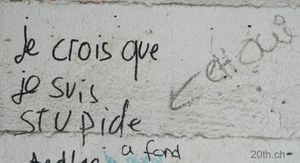 Je crois que
je suis
stupide
eh oui
a fond
20th.ch